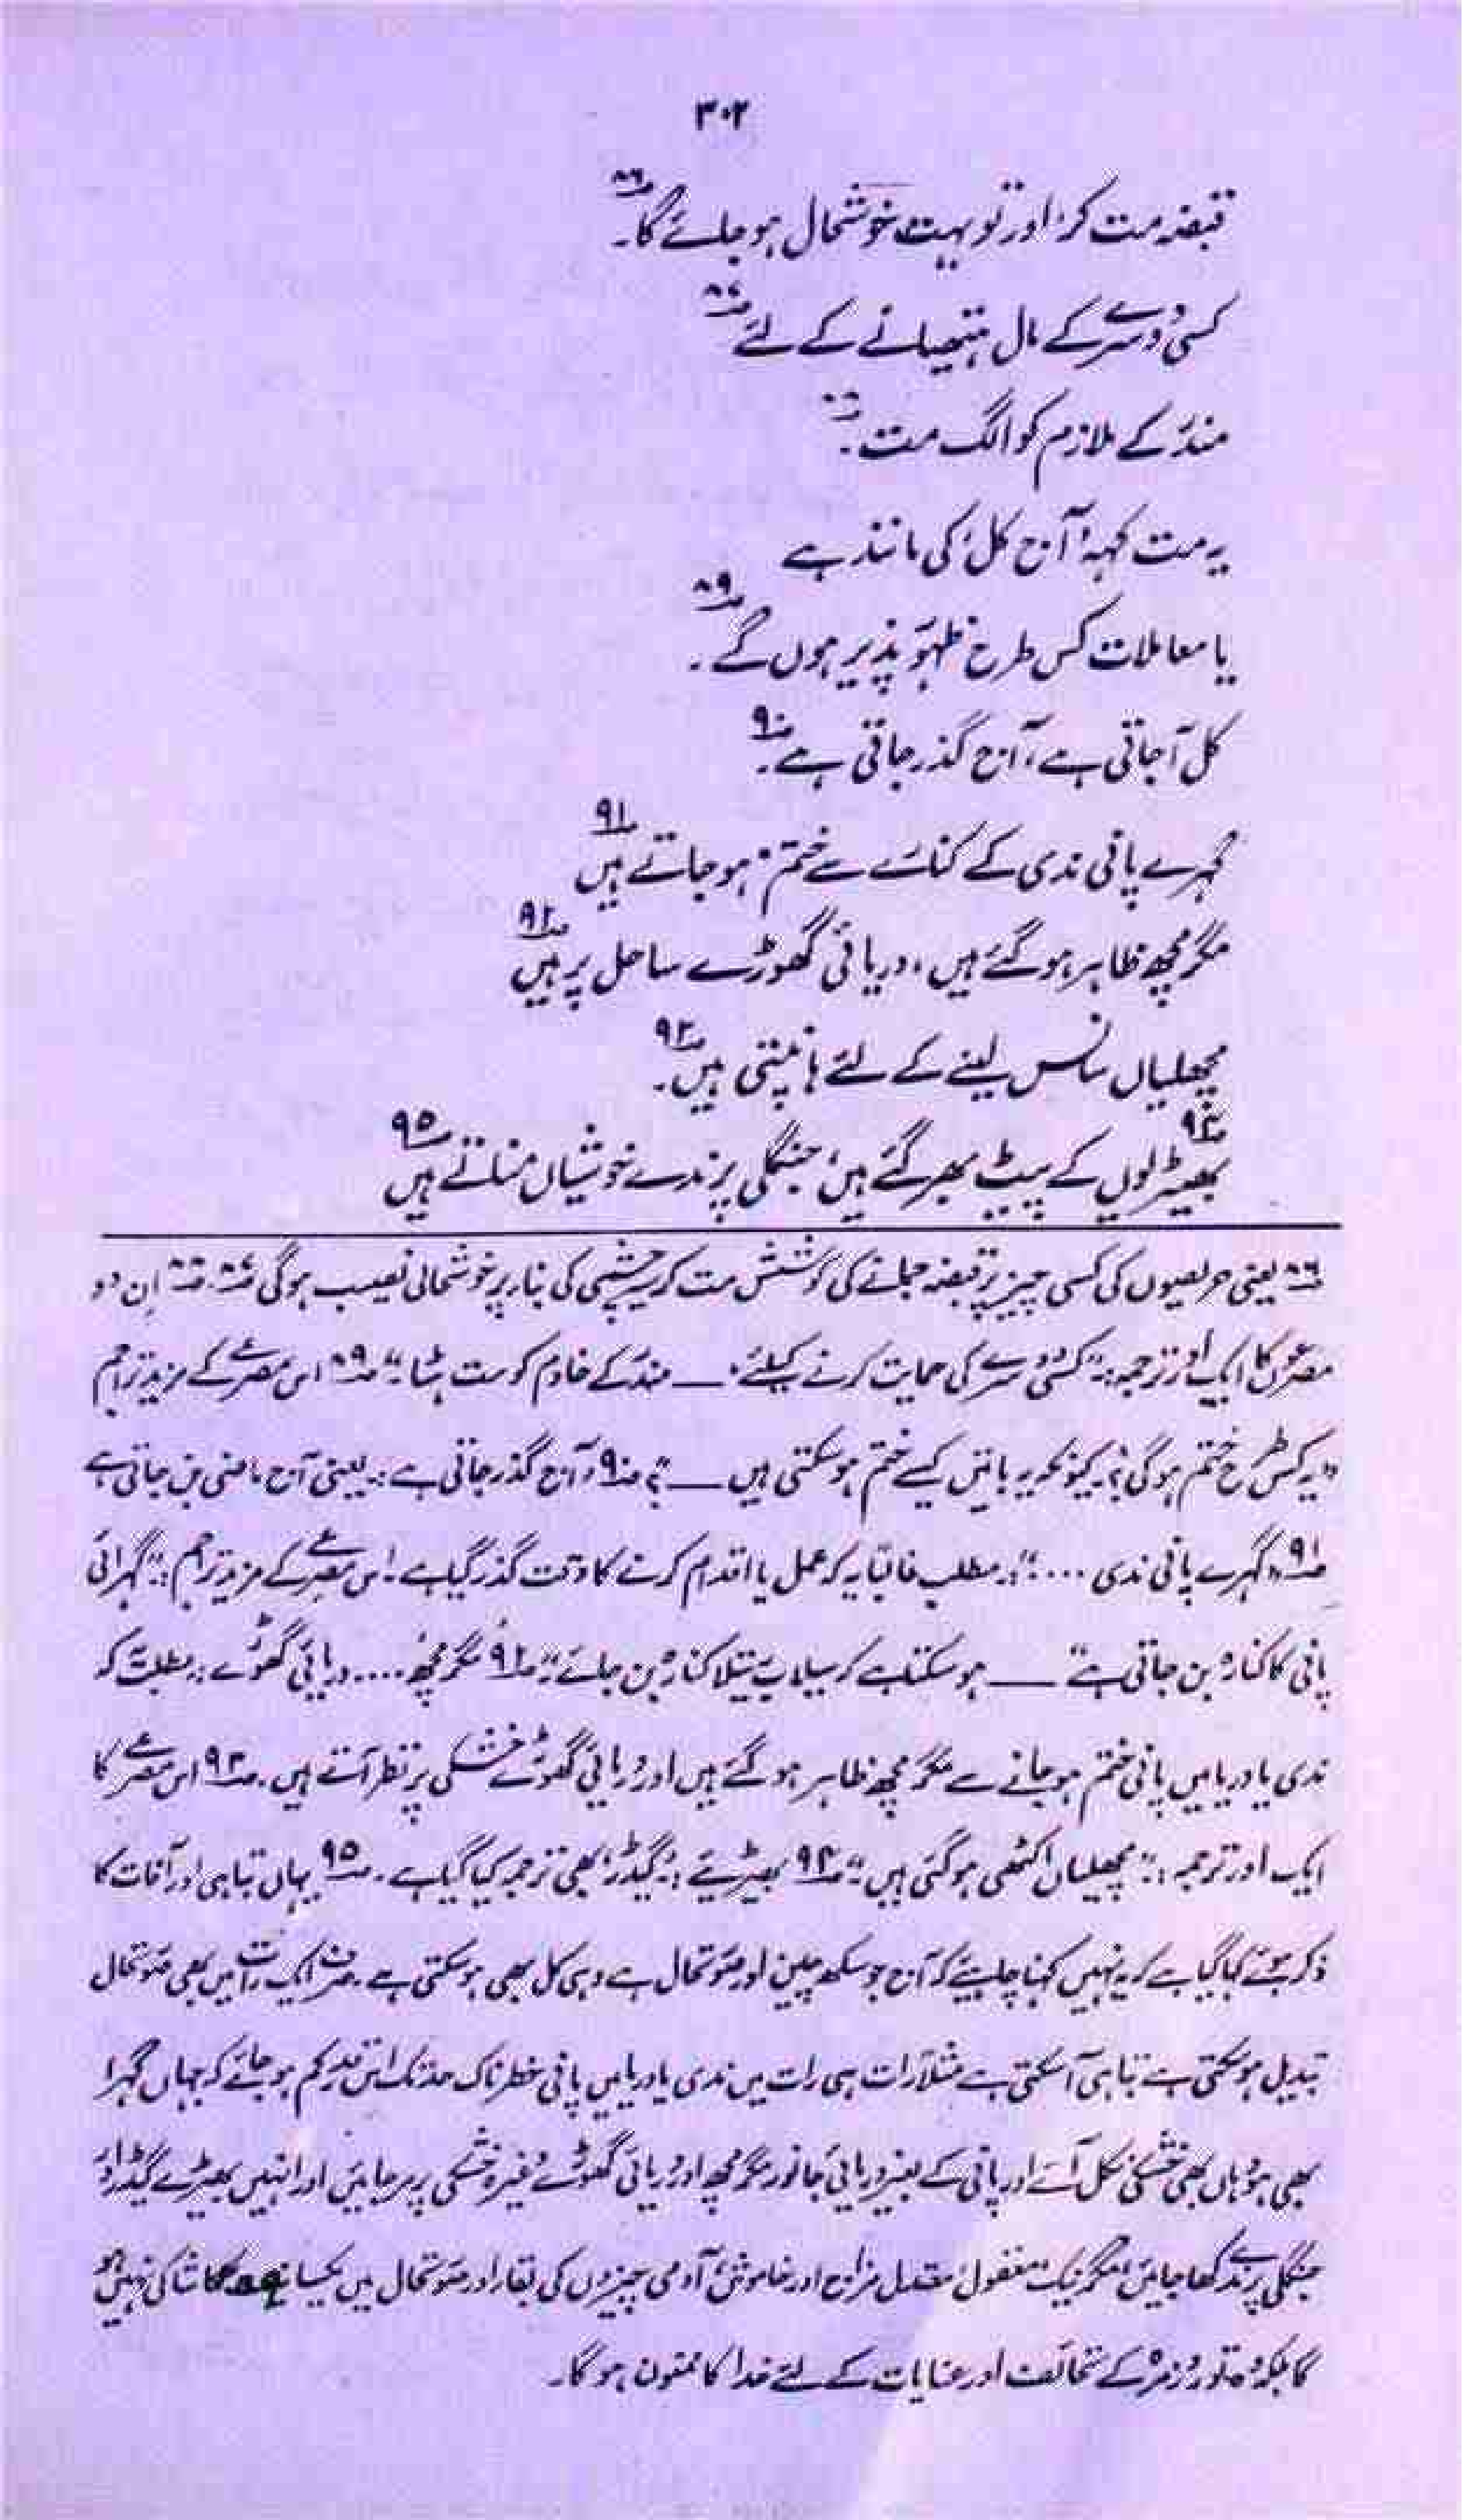 ۳۰۲
قبضہ مت کر، اور تو بہت خوشحال ہو جائے گا۔ ۸۶
کسی دوسرے کے مال ہتھیانے کے لئے ۸۷
مندر کے ملازم کو الگ مت ۔ ۸۸
یہ مت کہہ، آج کل کی مانند ہے
یا معاملات کس طرح ظہور پذیر ہوں گے ۔ ۸۹
کل آجاتی ہے، آج گذر جاتی ہے ۔ ۹۰
گہرے پانی ندی کے کنارے سے ختم ہو جاتے ہیں ۹۱
مگرمچھ ظاہر ہو گئے ہیں، دریائی گھوڑے ساحل پر ہیں ۹۲
مچھلیاں سانس لینے کے لئے ہانپتی ہیں ۔ ۹۳
بھیڑیوں ۹۴ کے پیٹ بھر گئے ہیں، جنگلی پرندے خوشیاں مناتے ہیں ۹۵
۸۶ یعنی حریصوں کی کسی چیز پر قبضہ جمانے کی کوشش مت کر کی بنا پر خوشحالی نصیب ہوگی ۸۷، ۸۸ ان دو
مصرعوں کا ایک اور ترجمہ :۔ "کسی دوسرے کی حمایت کرنے کیلئے ۔ ــ مندر کے خادم کو مت ہٹا :" ۸۹ اس مصرعے کے مزید تراجم
"یہ کس طرح ختم ہوگی؟ :۔ کیونکر یہ باتیں کیسے ختم ہو سکتی ہیں ــ ؟" ۹۰ آج گذر جاتی ہے :۔ یعنی آج ماضی بن جاتی ہے
۹۱ "گہرے پانی ندی ....":۔ مطلب غالباً یہ کہ عمل یا اقدام کرنے کا وقت گذر گیا ہے۔ اس مصرعے کے مزید تراجم :۔ "گہرائی
پانی کا کنارہ بن جاتی ہے" ــ ہو سکتا ہے کہ سیلاب پتلا کنارہ بن جائے :" ۹۲ مگرمچھ .... دریائی گھوڑے :۔ مطلب کہ
ندی یا دریا میں پانی ختم ہو جانے سے مگرمچھ ظاہر ہو گئے ہیں اور دریائی گھوڑے خشکی پر نظر آتے ہیں ۔ ۹۳ اس مصرعے کا
ایک اور ترجمہ :۔ "مچھلیاں اکٹھی ہو گئی ہیں :" ۹۴ بھیڑیئے :۔ "گیدڑ" بھی ترجمہ کیا گیا ہے ۔ ۹۵ یہاں تباہی اور آفات کا
ذکر ہوئے کہا گیا ہے کہ یہ نہیں کہنا چاہیئے کہ آج جو سکھ چین اور صورتحال ہے وہی کل بھی ہو سکتی ہے ۔ صرف ایک رات میں بھی صورتحال
تبدیل ہو سکتی ہے تباہی آ سکتی ہے مثلاً رات ہی رات میں ندی یا دریا میں پانی خطرناک حد تک اس قدر کم ہو جائے کہ جہاں گہرا
بھی ہو وہاں بھی خشکی نکل آئے اور پانی کے بغیر دریائی جانور مگرمچھ اور دریائی گھوڑے وغیرہ خشکی پر مر جائیں اور انہیں بھیڑیئے گیدڑ اور
جنگلی پرندے کھا جائیں۔ مگر نیک معقول، معتدل مزاج اور خاموش آدمی چیزوں کی بقا اور صورتحال میں کا شاکی نہیں ہو
گا بلکہ وہ تو روزمرہ کے تحائف اور عنایات کے لئے خدا کا ممنون ہوگا۔